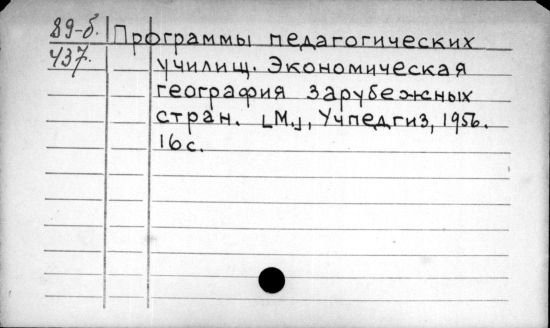 89-б.
437.
Программы педагогических
училищ. Экономическая
география зарубежных
стран. [М.], Учпедгиз, 1956.
16с.